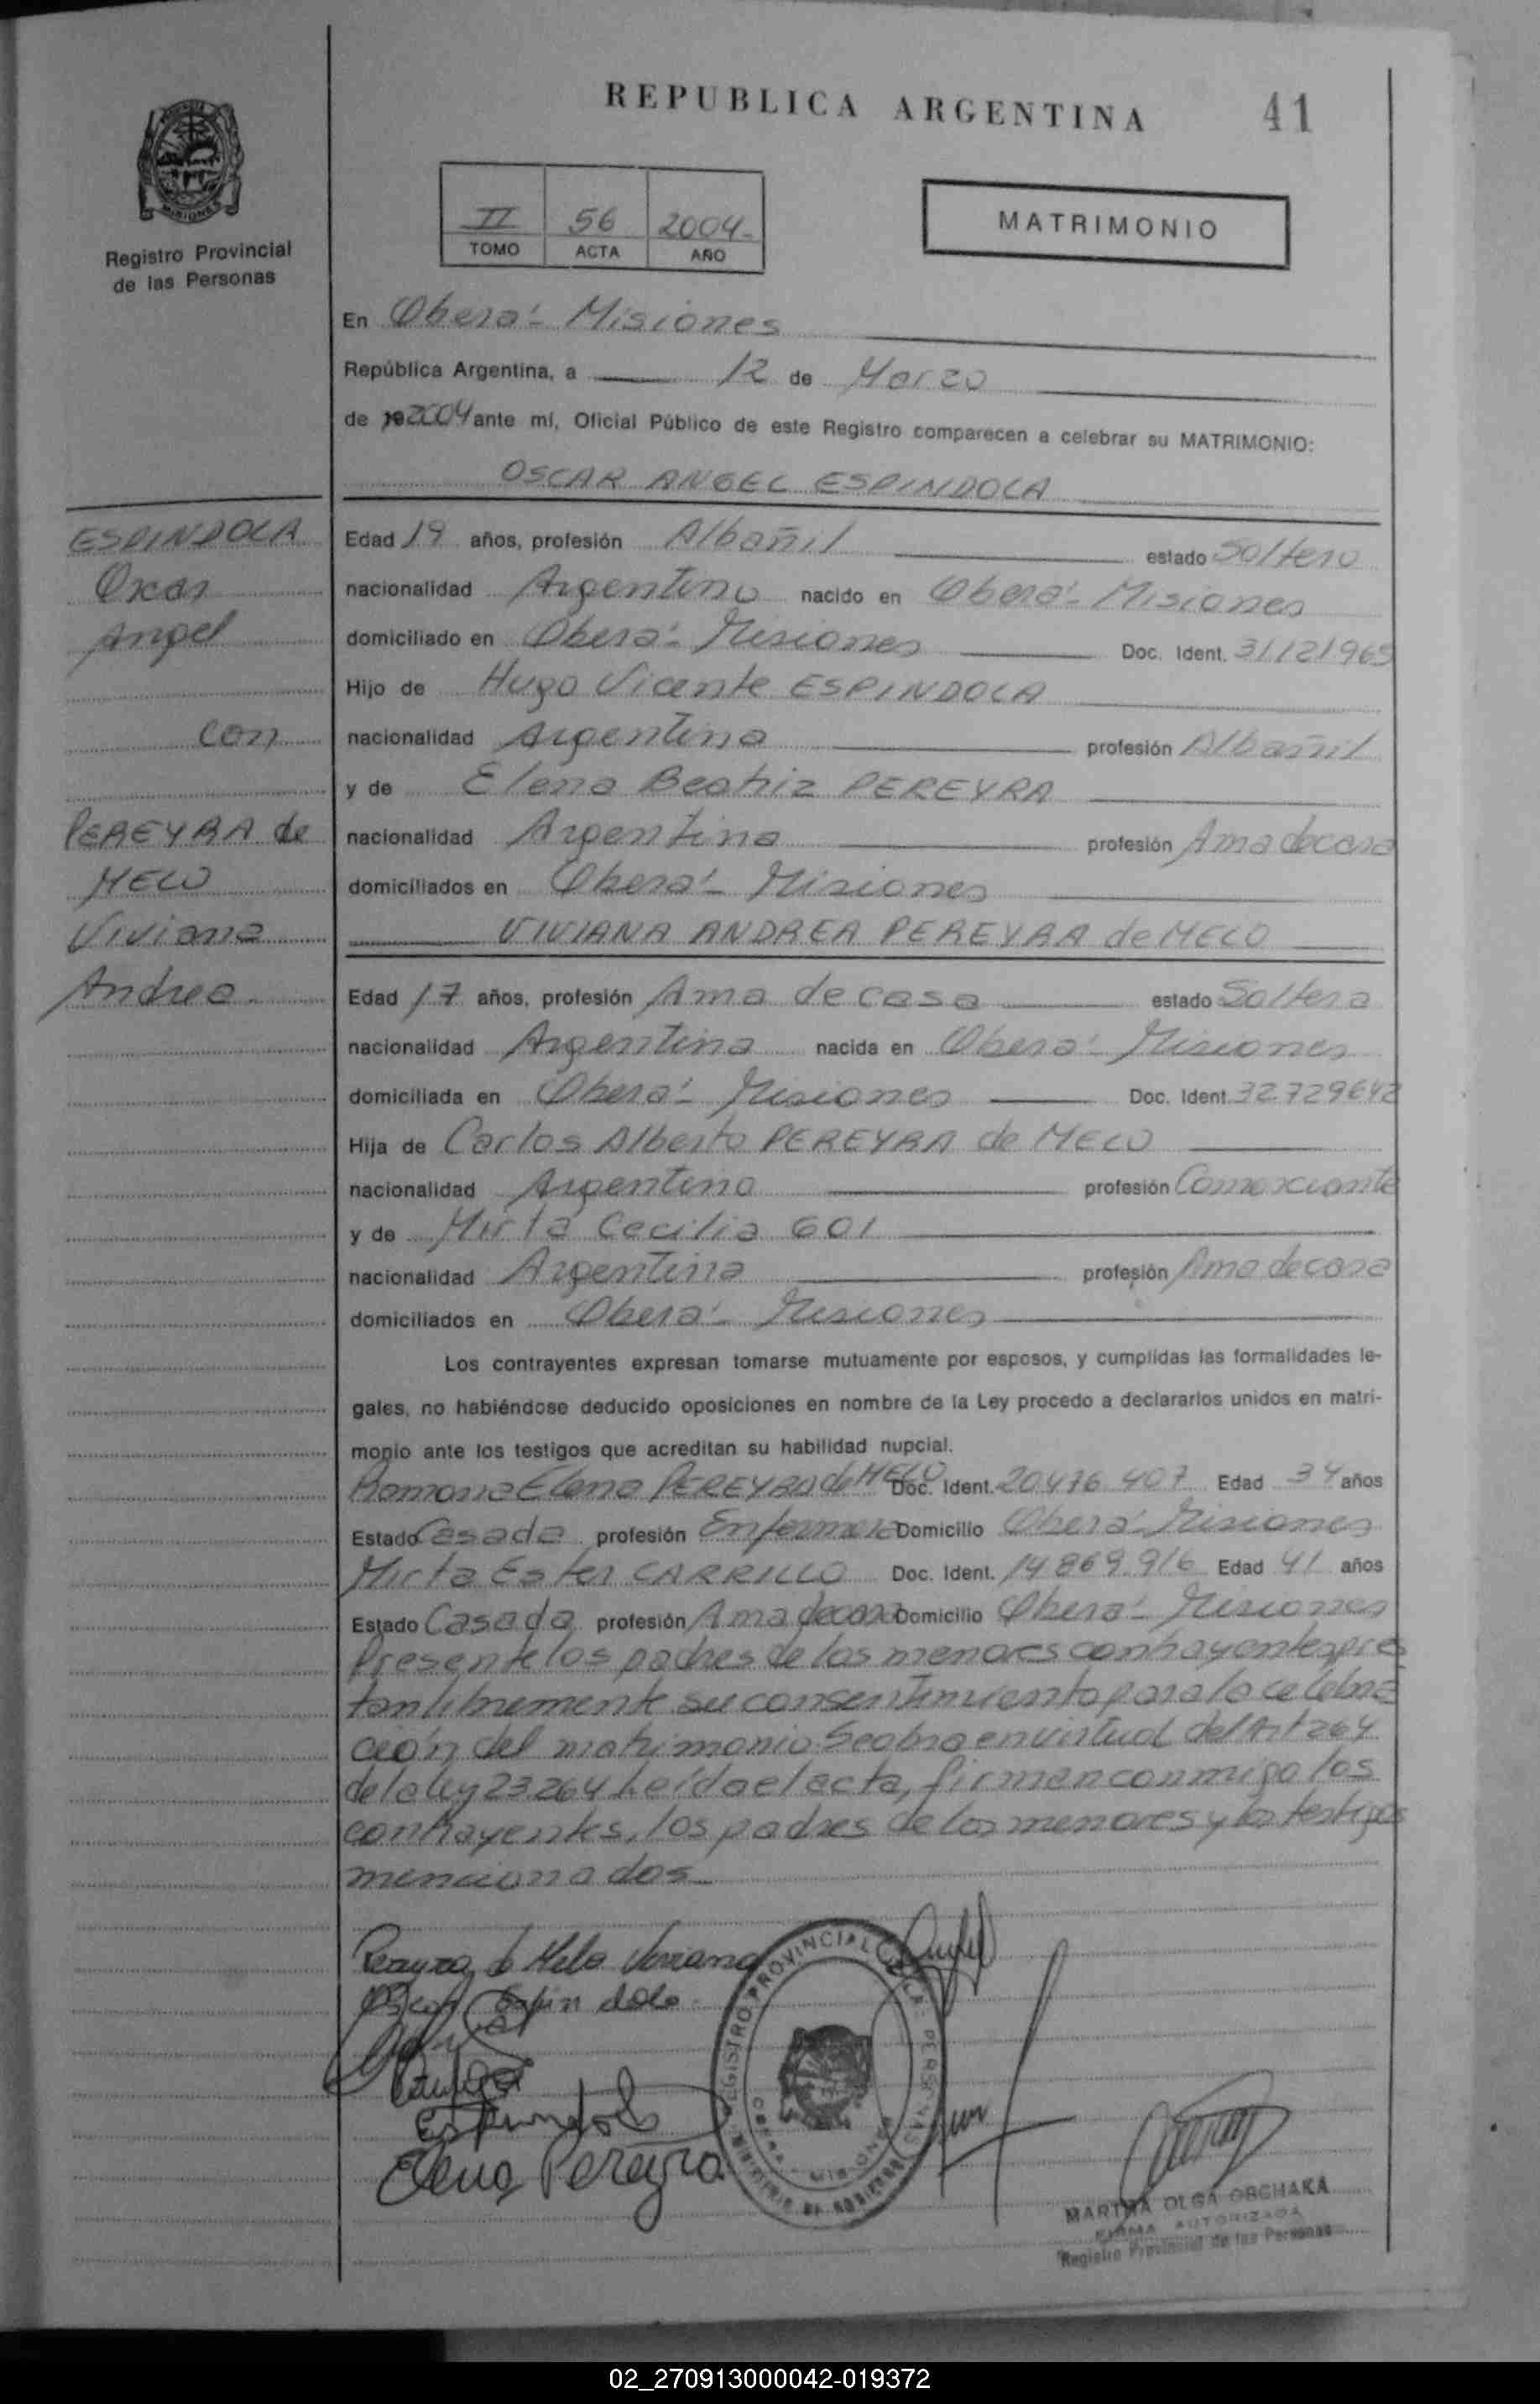 REPUBLICA ARGENTINA
41
MISIONES
Registro Provincial
de las Personas
II 56 2004-
TOMO ACTA AÑO
MATRIMONIO
En Oberá - Misiones
República Argentina, a 12 de Marzo
de 192004 ante mí, Oficial Público de este Registro comparecen a celebrar su MATRIMONIO:
OSCAR ANGEL ESPINDOLA
ESPINDOLA
Oscar
Angel
con
PEREYRA de
MELO
Viviana
Andrea.
Edad 19 años, profesión Albañil estado Soltero
nacionalidad Argentino nacido en Oberá - Misiones
domiciliado en Oberá - Misiones Doc. Ident. 31.121.965
Hijo de Hugo Vicente ESPINDOLA
nacionalidad Argentina profesión Albañil
y de Elena Beatriz PEREYRA
nacionalidad Argentina profesión Ama de casa
domiciliados en Oberá - Misiones
VIVIANA ANDREA PEREYRA de MELO
Edad 17 años, profesión Ama de casa estado Soltera
nacionalidad Argentina nacida en Oberá - Misiones
domiciliada en Oberá - Misiones Doc. Ident. 32.729642
Hija de Carlos Alberto PEREYRA de MELO
nacionalidad Argentina profesión Comerciante
y de Mirta Cecilia
nacionalidad Argentina profesión Ama de casa
domiciliados en Oberá - Misiones
Los contrayentes expresan tomarse mutuamente por esposos, y cumplidas las formalidades le-
gales, no habiéndose deducido oposiciones en nombre de la Ley procedo a declararlos unidos en matri-
monio ante los testigos que acreditan su habilidad nupcial.
Ramona Elena PEREYRA de MELO Doc. Ident. 20.476.407 Edad 34 años
Estado Casada profesión Enfermera Domicilio Oberá - Misiones
Mirta Ester CARRILLO Doc. Ident. 14.869.916 Edad 41 años
Estado Casada profesión Ama de casa Domicilio Oberá - Misiones
Presente los padres de los menores contrayentes pres
tan libremente su consentimiento para la celebra
ción del matrimonio. Se obra en virtud del Art 264
de la ley 23.264. Leída el acta, firman conmigo los
contrayentes, los padres de los menores y los testigos
mencionados.
Pereyra de Melo Viviana
Oscar Espindola
Espindola
Elena Pereyra
REGISTRO PROVINCIAL DE LAS PERSONAS
MINISTERIO DE GOBIERNO
OBERA - MISIONES
MARTHA OLGA OBCHAKA
FIRMA AUTORIZADA
Registro Provincial de las Personas
02_270913000042-019372